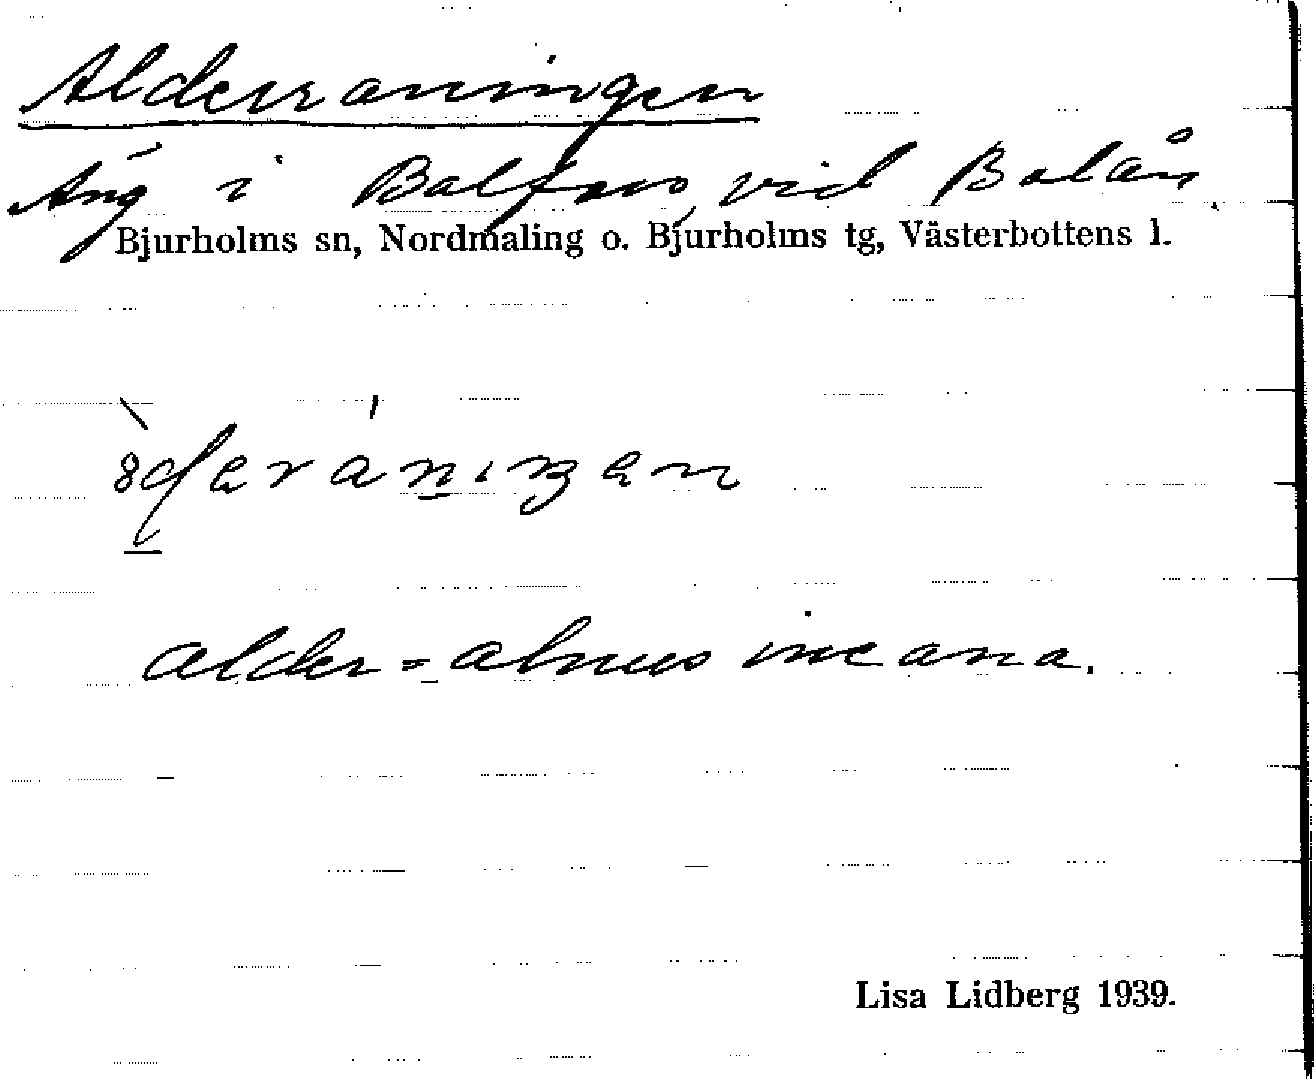 Alderraningen
Äng i Balfors, vid Balån
Bjurholms sn, Nordmaling o. Bjurholms tg, Västerbottens l.
alder = alnus incana.
Lisa Lidberg 1939.